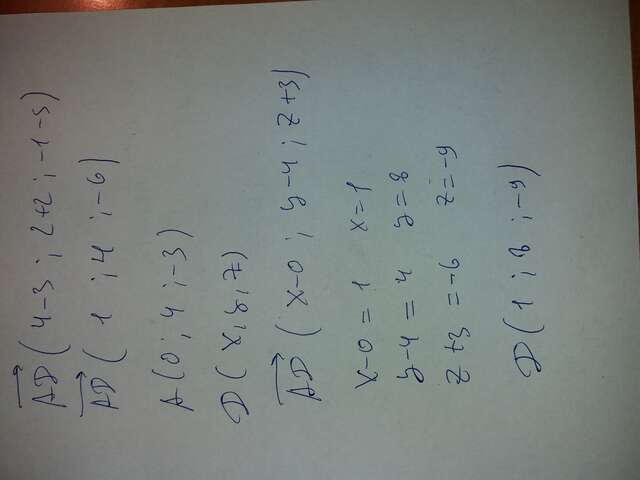 AD ( 4-3 ; 2+2 ; -1-5 )
AD ( 1 ; 4 ; -6 )
A ( 0 ; 4 ; -3 )
D ( x, y, z )
AD ( x-0 ; y-4 ; z+3 )
x-0 = 1 x=1
y-4 = 4 y=8
z+3 = -6 z=-9
D ( 1 ; 8 ; -9 )